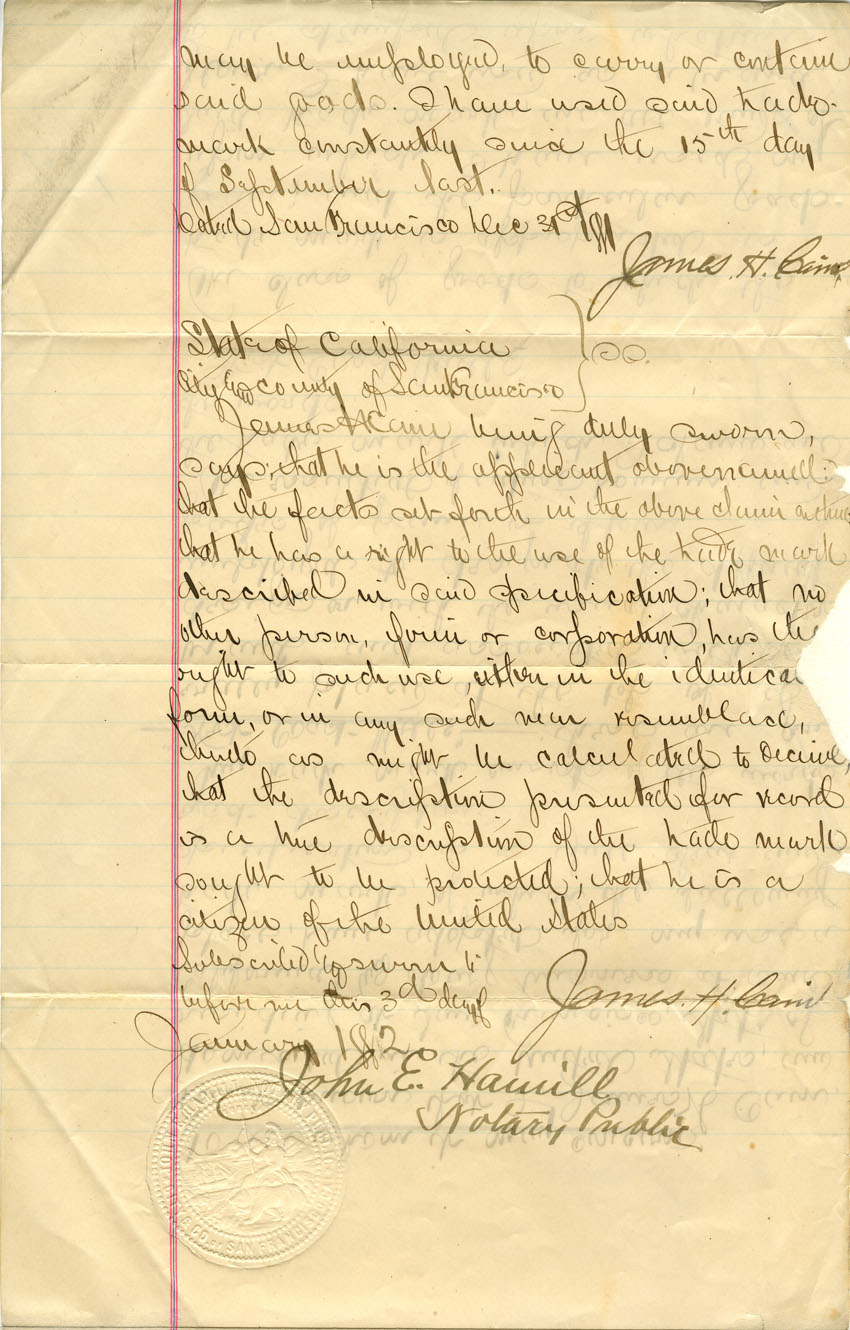 may be employed, to carry or contain
said goods. I have used said trade-
mark constantly since the 15th day
of September last.
Dated San Francisco Dec 31st 1881
James. H. Cain.
State of California
City and county of San Francisco } ss.
James H Cain being duly sworn,
says; that he is the applicant above named:
that the facts set forth in the above claim are true
that he has a right to the use of the trade mark
described in said specification; that no
other person, firm or corporation, has the
right to such use, either in the identical
form, or in any such near resemblace,
thereto as might be calculated to deceive,
that the description presented for record
is a true description of the trade mark
sought to be protected; that he is a
citizen of the United States
Subscribed & sworn to
before me this 3d day of
James. H. Cain
January 1882.
John E. Hamill
Notary Public
SAN FRANCISCO